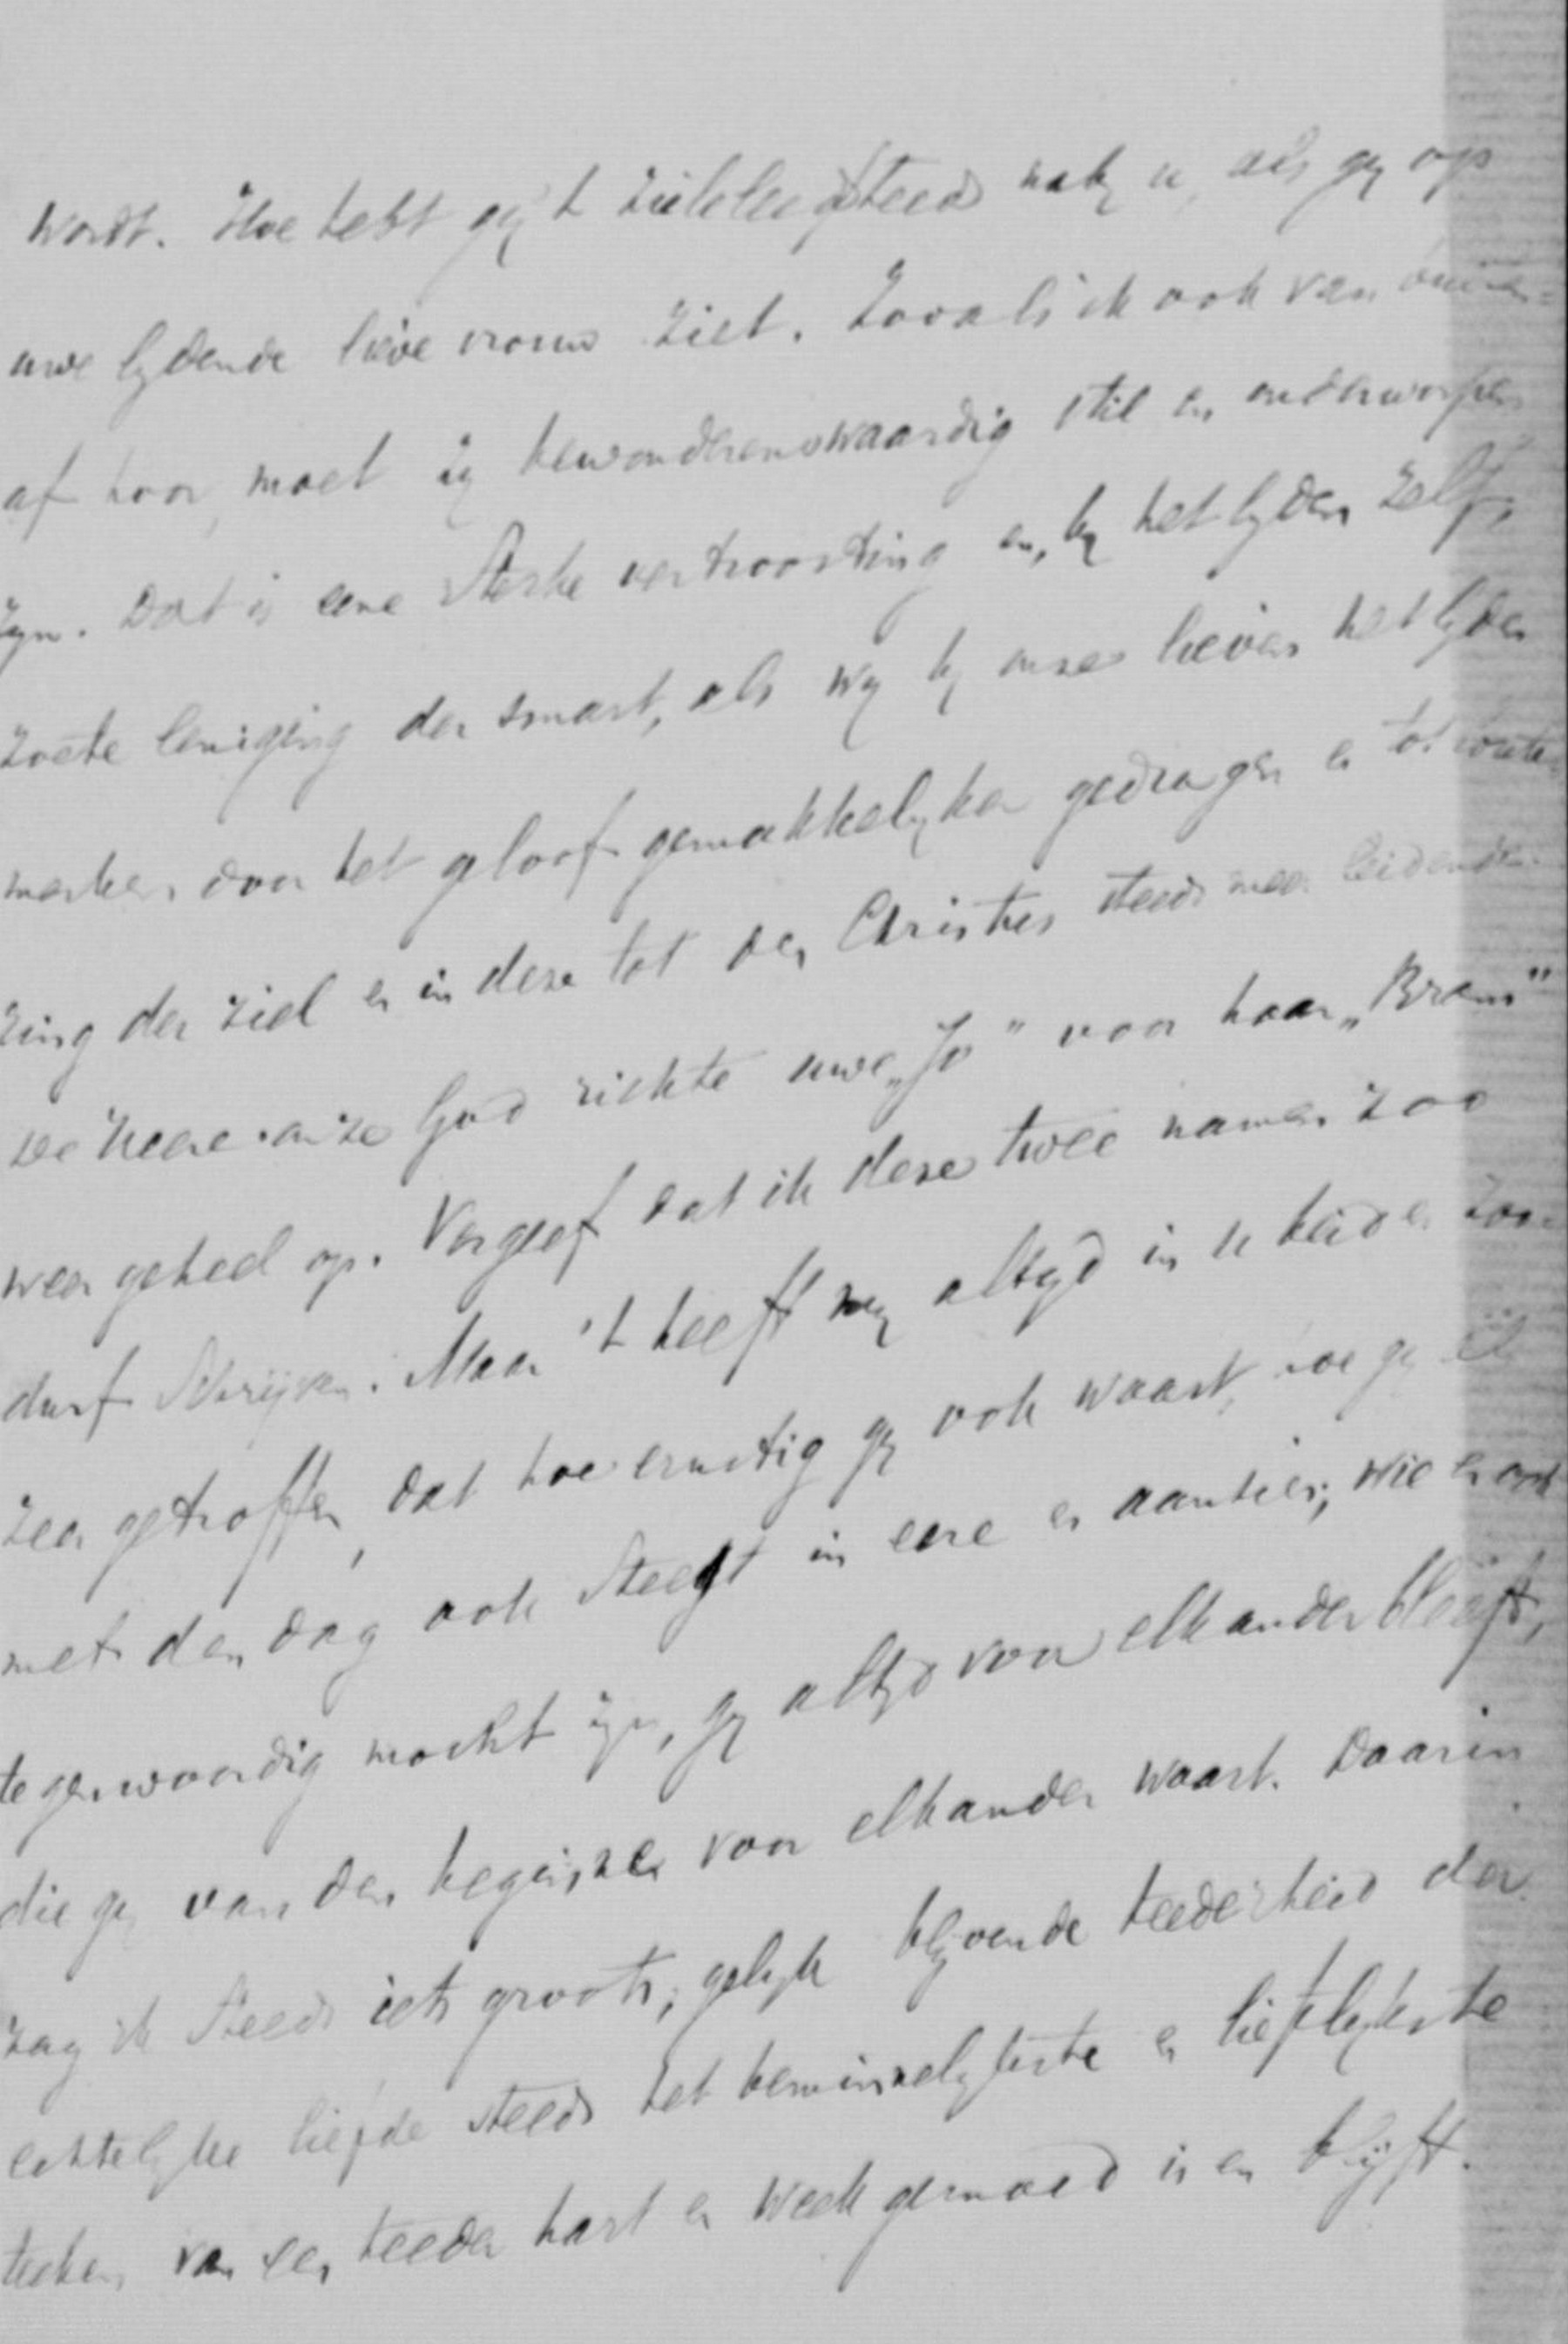 wordt. Hoe hebt gij 't zieleleed steeds nabij u, als gij op
uwe lijdende lieve vrouw ziet. Zooals ik ook van
af hoor, moet zij bewonderenswaardig stil en onderworpen
zijn. Dat is eene sterke vertroosting en, bij het lijden zelf,
zoete leniging der smart, als wij bij onze lieven het lijden
merken door het geloof gemakkelijker gedragen en tot loute-
ring der ziel en in deze tot den Christus steeds meer leidende.
De Heere onze God richte uwe „Jo" voor haar „Bram"
weer geheel op. Vergeef dat ik deze twee namen zoo
durf schrijven. Maar 't heeft mij altijd in u beiden zoo
zeer getroffen, dat hoe ernstig gij ook waart, hoe gij
met den dag ook steegt in eere en aanzien, wie er ook
tegenwoordig mocht zijn, gij altijd voor elkander bleeft,
die gij van den beginne voor elkander waart. Daarin
zag ik steeds iets groots, gelijk blijvende teederheid der
echtelijke liefde steeds het beminnelijkste en liefelijkste
teeken van een teeder hart en week gemoed is en blijft.